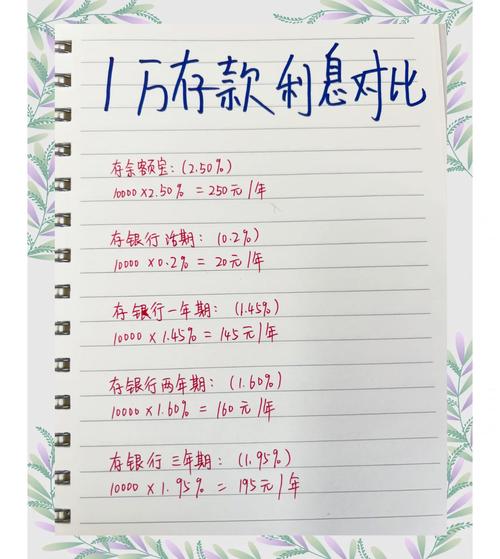 1万存款利息对比
存余额宝：(2.50%)
10000×2.50% = 250元/年
存银行活期：(0.2%)
10000×0.2% = 20元/年
存银行一年期：(1.45%)
10000×1.45% = 145元/年
存银行两年期：(1.60%)
10000×1.60% = 160元/年
存银行三年期：(1.95%)
10000×1.95% = 195元/年